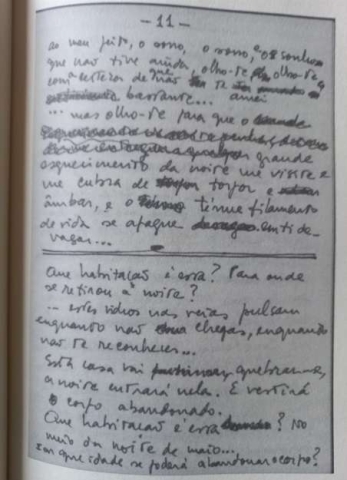 — 11 —
ao meu peito, o sono, o sono, e os sonhos
que não tive ainda, olho-te, olho-te
com a certeza de que não te amei
bastante...
... mas olho-te para que o
grande
esquecimento da noite me visite e
me cubra de torpor e
âmbar, e o ténue filamento
de vida se apague em ti de-
vagar...
Que habitação é essa? Para onde
se retirou a noite?
... estes vidros nas veias pulsam
enquanto não chegas, enquanto
não te reconheces...
Esta casa vai quebrar-
a noite entrará nela. E vestirá
o corpo abandonado.
Que habitação é essa? No
meio da noite de maio...
em que idade se poderá abandonar o corpo?